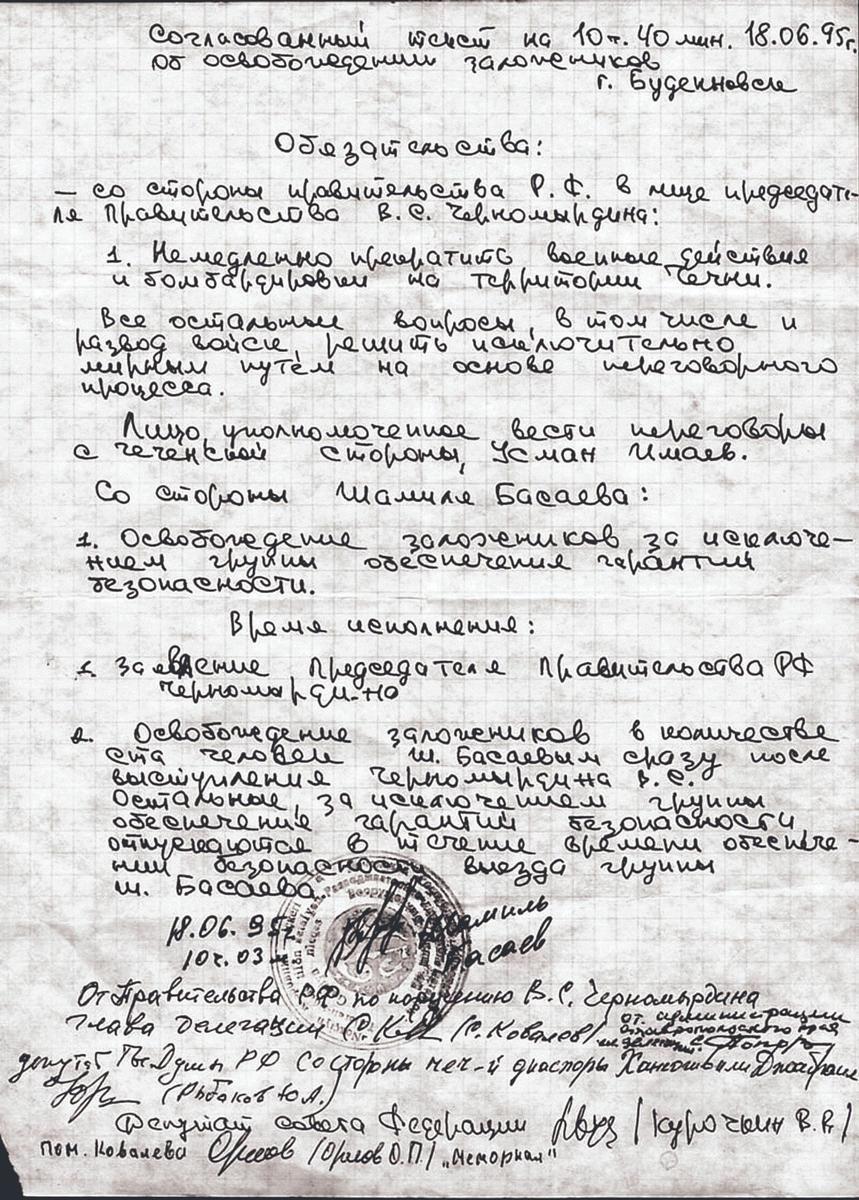 Согласованный текст на 10ч. 40 мин. 18.06.95г.
об освобождении заложников
г. Буденновск
Обязательства:
— со стороны правительства Р.Ф. в лице председате-
ля Правительства В.С. Черномырдина:
1. Немедленно прекратить военные действия
и бомбардировки на территории Чечни.
Все остальные вопросы, в том числе и
развод войск, решить исключительно
мирным путём на основе переговорного
процесса.
Лицо, уполномоченное вести переговоры
с чеченской стороны, Усман Имаев.
Со стороны Шамиля Басаева:
1. Освобождение заложников за исключе—
нием группы обеспечения гарантий
безопасности.
Время исполнения:
1. Заявление Председателя Правительства РФ
Черномырди-на
2. Освобождение заложников в количестве
ста человек Ш. Басаевым сразу после
выступления Черномырдина В.С.
Остальные, за исключением группы
обеспечения гарантий безопасности
отпускаются в течение времени обеспече-
нии безопасности выезда группы
Ш. Басаева
18.06.95г. Шамиль
10ч. 03м Басаев
От Правительства РФ по поручению В.С. Черномырдина
Глава делегации /С. Ковалев/ от администрации
Ставропольского края
депутат Гос Думы РФ Со стороны чеч-й диаспоры
(Рыбаков Ю.А.)
Депутат совета Федерации /Курочкин В.В./
пом. Ковалева Орлов /Орлов О.П./ „Мемориал"